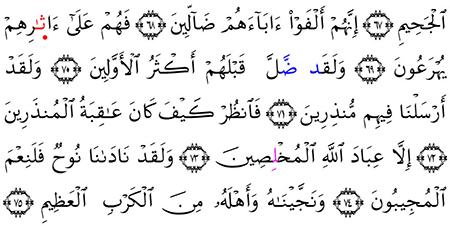 ٱلْجَحِيمِ ﴿٦٧﴾ إِنَّهُمْ أَلْفَوْا۟ ءَابَآءَهُمْ ضَآلِّينَ ﴿٦٨﴾ فَهُمْ عَلَىٰٓ ءَاثَٰرِهِمْ
يُهْرَعُونَ ﴿٦٩﴾ وَلَقَد ضَّلَّ قَبْلَهُمْ أَكْثَرُ ٱلْأَوَّلِينَ ﴿٧٠﴾ وَلَقَدْ
أَرْسَلْنَا فِيهِم مُّنذِرِينَ ﴿٧١﴾ فَٱنظُرْ كَيْفَ كَانَ عَٰقِبَةُ ٱلْمُنذَرِينَ
﴿٧٢﴾ إِلَّا عِبَادَ ٱللَّهِ ٱلْمُخْلِصِينَ ﴿٧٣﴾ وَلَقَدْ نَادَىٰنَا نُوحٌ فَلَنِعْمَ
ٱلْمُجِيبُونَ ﴿٧٤﴾ وَنَجَّيْنَٰهُ وَأَهْلَهُۥ مِنَ ٱلْكَرْبِ ٱلْعَظِيمِ ﴿٧٥﴾